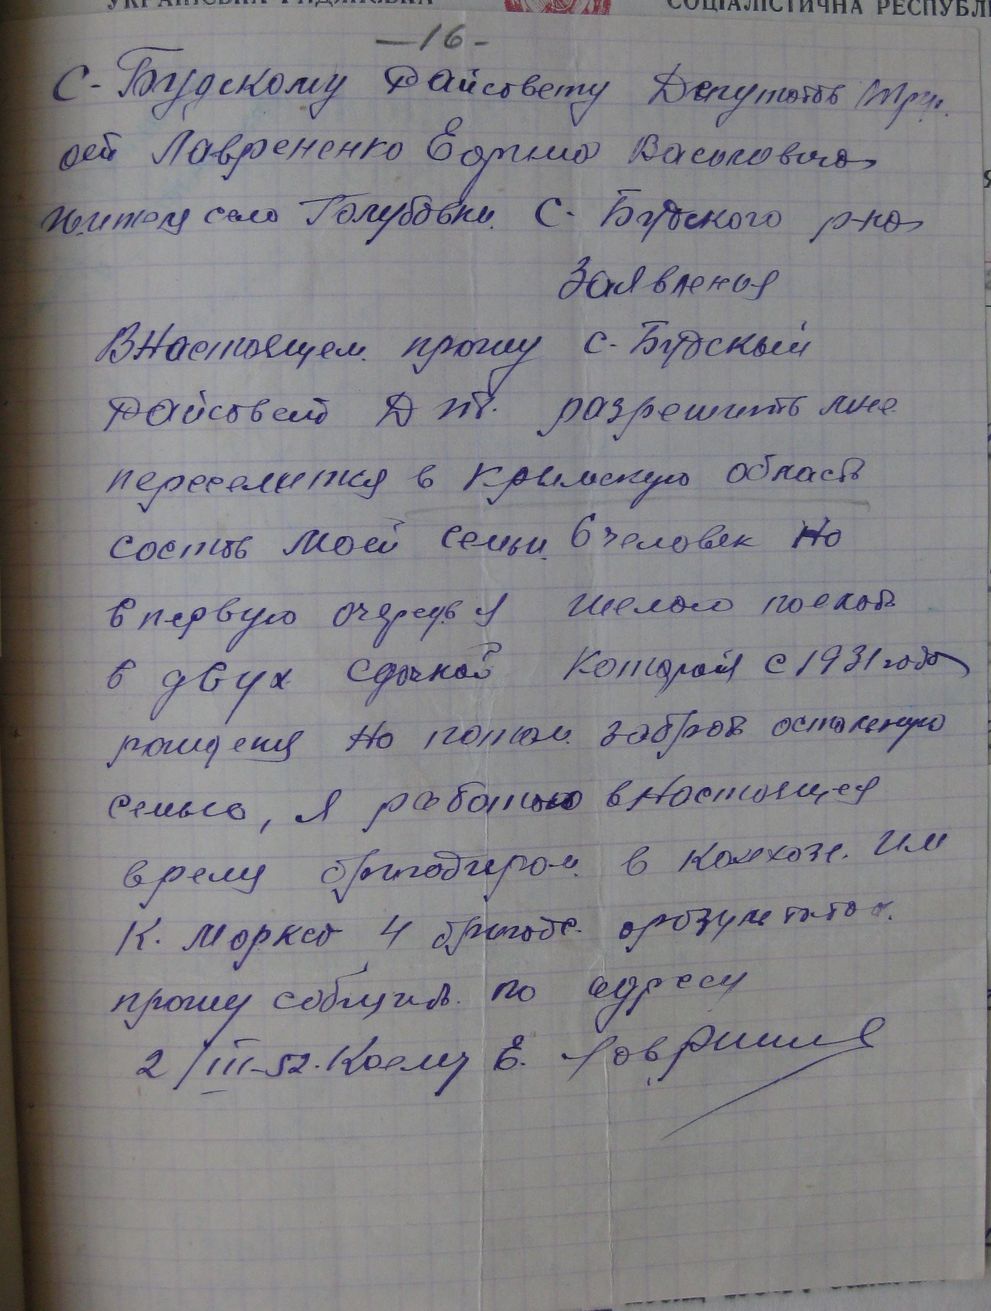 УКРАЇНСЬКА РАДЯНСЬКА СОЦІАЛІСТИЧНА РЕСПУБЛІ
-16-
С-Будскому Райсовету Депутатов Труд.
от Лаврененко Василовича
жителя село Голубовки С-Будского р-на
Заявления
В Настоящем прошу С-Будский
Райсовет Д тт. разрешить мне
переселится в Крымскую область
состав Моей семьи 6 человек Но
в первую очередь я желаю поехат
в двух сдочкой Которая с 1931 года
рождения Но потом забрат остальную
семью, я работаю в Настоящея
время бригадиром в колхозе Им
К. Маркса 4 бригаде. орезультатах
прошу собщить по адресу
2/III-52. К сему Е.